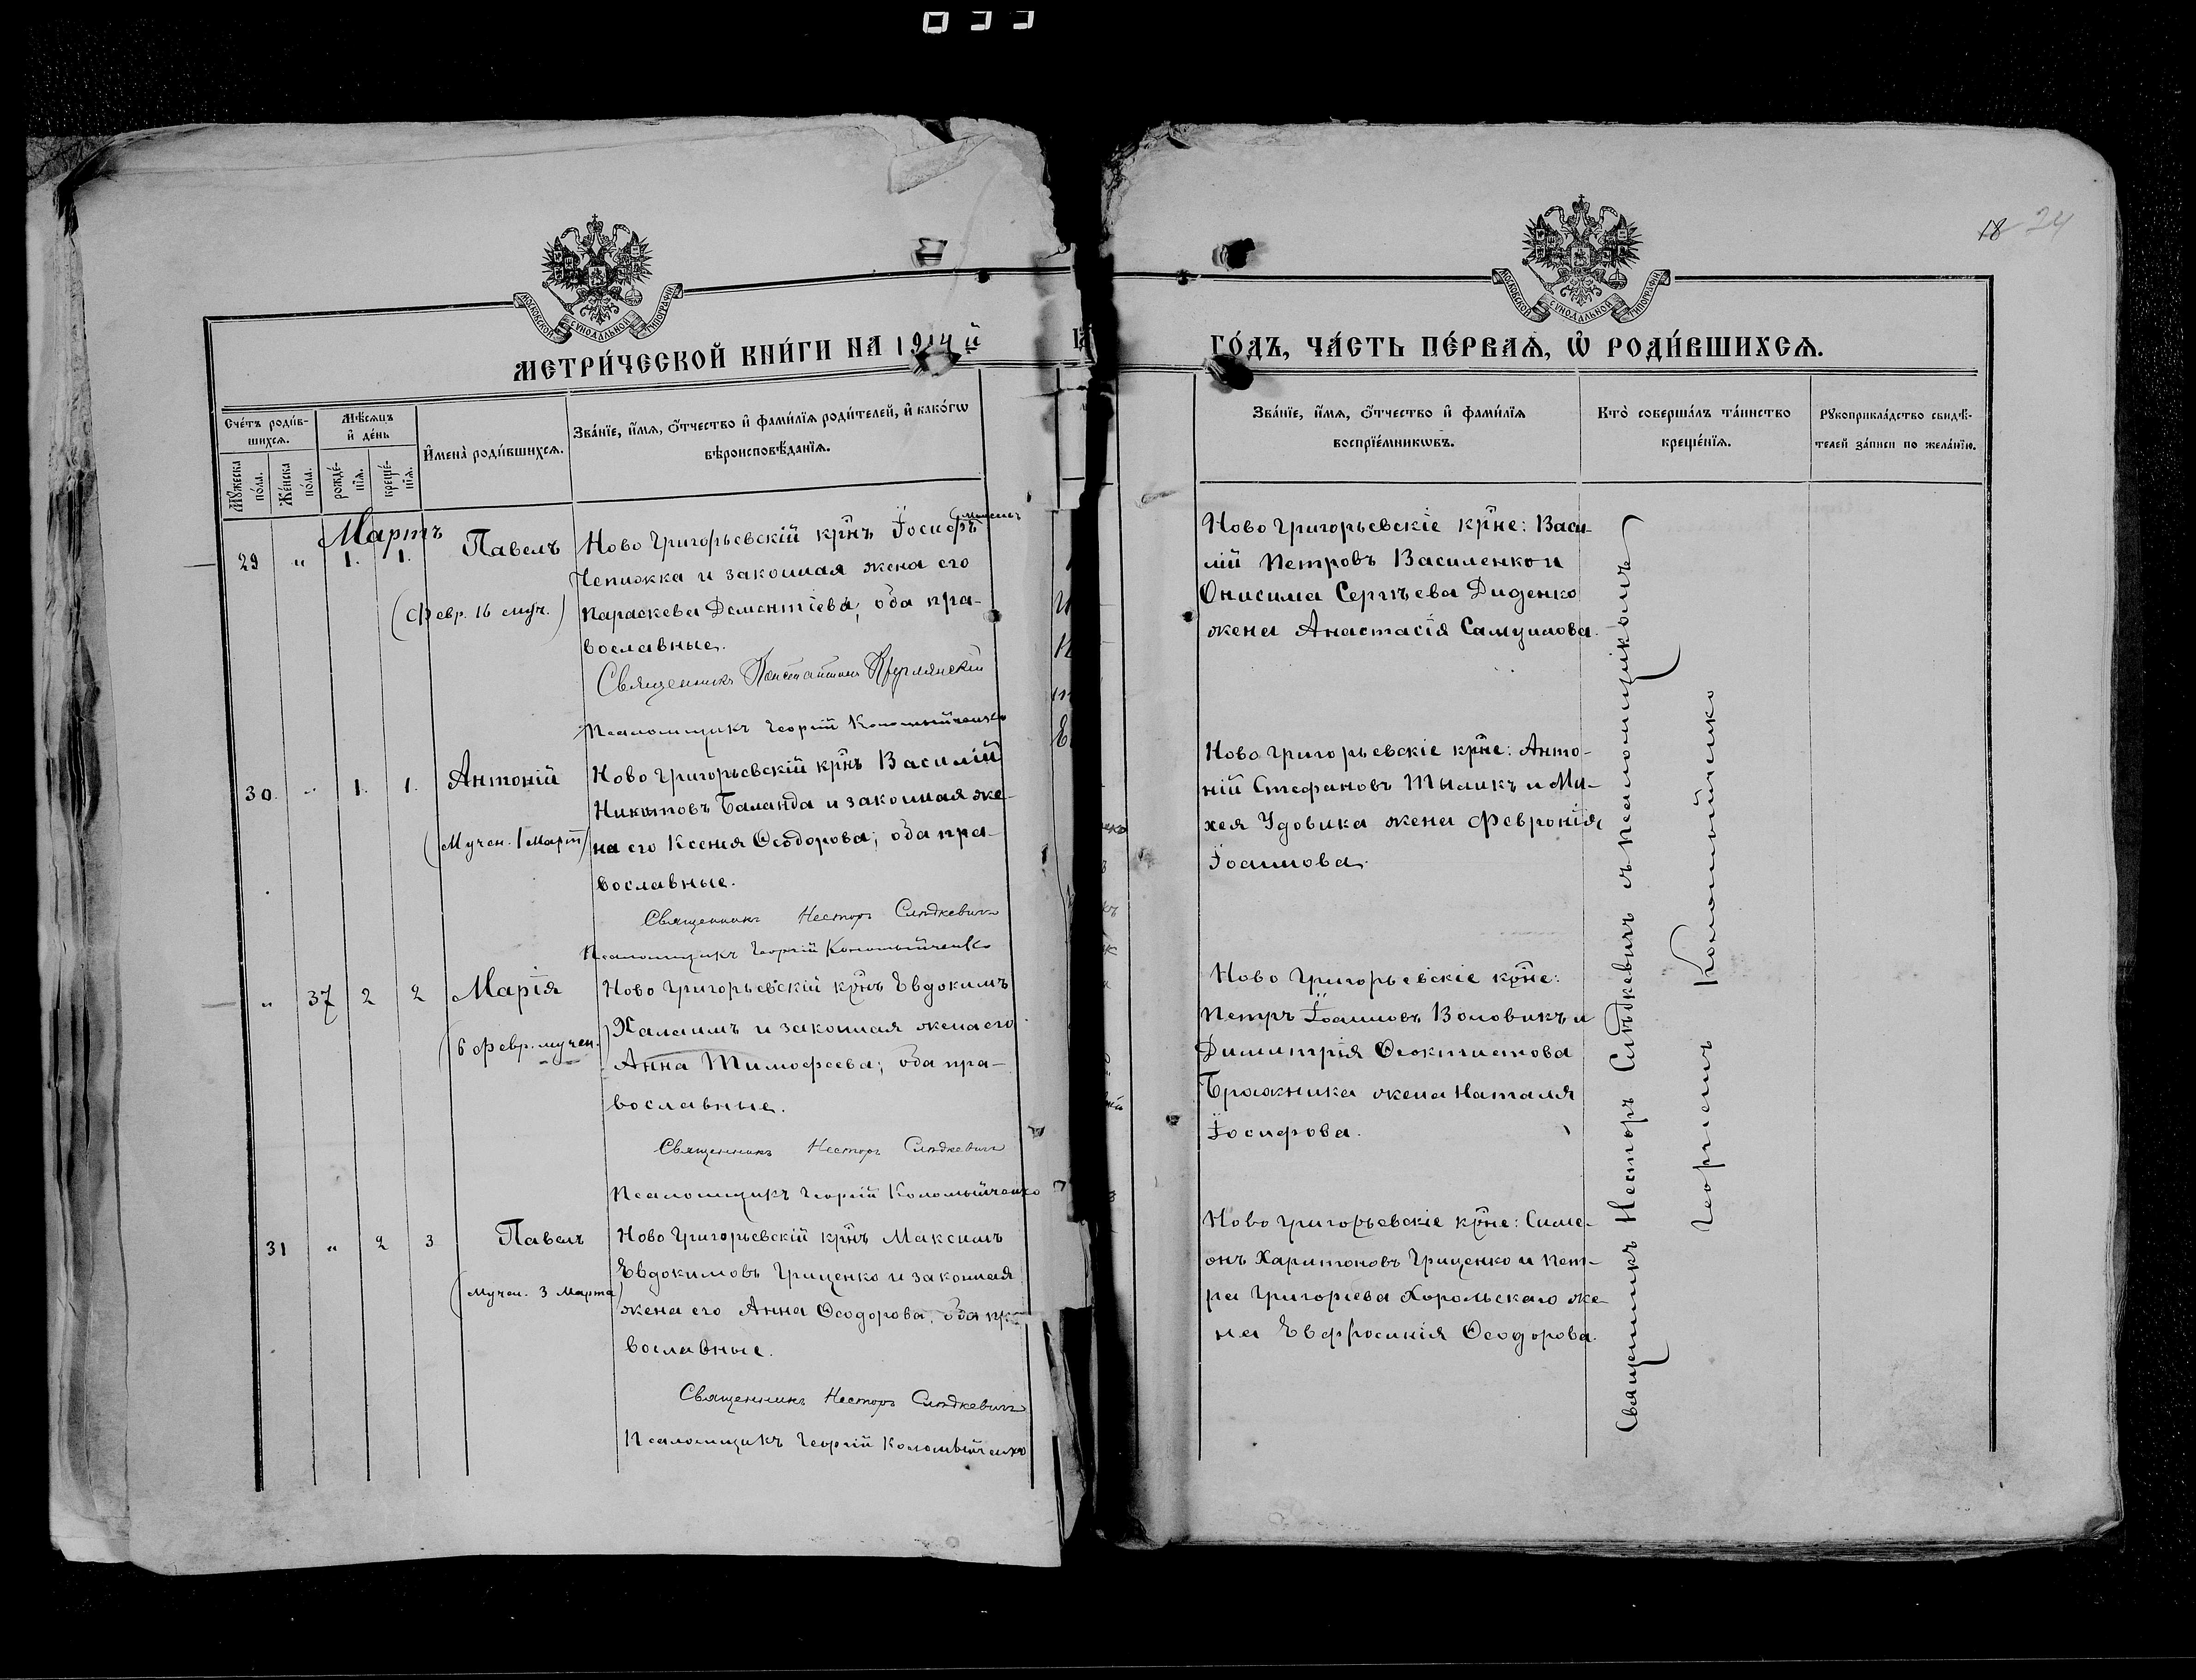 033
18 24
МОСКОВСКОЙ СУНОДАЛЬНОЙ ТИПОГРАФІИ
МЕТРИ́ЧЕСКОЙ КНИ́ГИ НА 1914 й
Сче́тъ роди́в-
шихсѧ.
Мѣ́сѧцъ
и҆ де́нь
Мꙋ́жеска
по́ла.
Же́нска
по́ла.
рожде́-
нїѧ.
креще́-
нїѧ.
И҆мена̀ роди́вшихсѧ.
Зва́нїе, и҆́мѧ, ѻ҆́тчество и҆ фами́лїѧ роди́телей, и҆ како́гѡ
вѣроисповѣ́данїѧ.
Мартъ
29 " 1. 1. Павелъ
(Февр. 16 муч.)
Ново Григорьевскій крн̃ъ Іосифъ
Чепижка и законная жена его
Параскева Дементіева; оба пра-
вославные.
Священникъ Константинъ Круглянскій
Псаломщикъ Георгій Коломыйченко
30. " 1. 1. Антоній
(Мучен. 1 Март)
Ново Григорьевскій крн̃ъ Василій
Никитовъ Баланда и законная же-
на его Ксенія Ѳеодорова; оба пра-
вославные.
Священникъ Несторъ Слѣдкевичъ
Псаломщикъ Георгій Коломыйченко
" 37 2 2 Марія
(6 февр. мучен.
Ново Григорьевскій крн̃ъ Евдокимъ
Халаимъ и законная жена его
Анна Тимофеева; оба пра-
вославные.
Священникъ Несторъ Слѣдкевичъ
Псаломщикъ Георгій Коломыйченко
31 " 2 3 Павелъ
(Мучен. 3 Марта)
Ново Григорьевскій крн̃ъ Максимъ
Евдокимовъ Гриценко и законная
жена его Анна Ѳеодорова, оба пра
вославные.
Священникъ Несторъ Слѣдкевичъ
Псаломщикъ Георгій Коломыйченко
МОСКОВСКОЙ СУНОДАЛЬНОЙ ТИПОГРАФІИ
ГО́ДЪ, ЧА́СТЬ ПЕ́РВАѦ, Ѡ҆ РОДИ́ВШИХСѦ.
Зва́нїе, и҆́мѧ, ѻ҆́тчество и҆ фами́лїѧ
воспрїе́мникѡвъ.
Кто̀ соверша́лъ та́инство
креще́нїѧ.
Рꙋкоприкла́дство свидѣ́-
телей за́писи по жела́нїю.
Ново Григорьевскіе крн̃е: Васи-
лій Петровъ Василенко и
Онисима Сергѣева Диденко
жена Анастасія Самуилова.
Ново Григорьевскіе крн̃е: Анто-
ній Стефановъ Тыликъ и Ми-
хея Удовика жена Февронія
Іоаннова.
Ново Григорьевскіе крн̃е:
Петръ Іоанновъ Воловикъ и
Димитрія Ѳеоктистова
Бражника жена Наталія
Іосифова.
Ново Григорьевскіе крн̃е: Симе-
онъ Харитоновъ Гриценко и Пет-
ра Григорьева Хорольскаго же-
на Евфросинія Ѳеодорова.
Священникъ Несторъ Слѣдкевичъ съ псаломщикомъ
Георгіемъ Коломыйченко